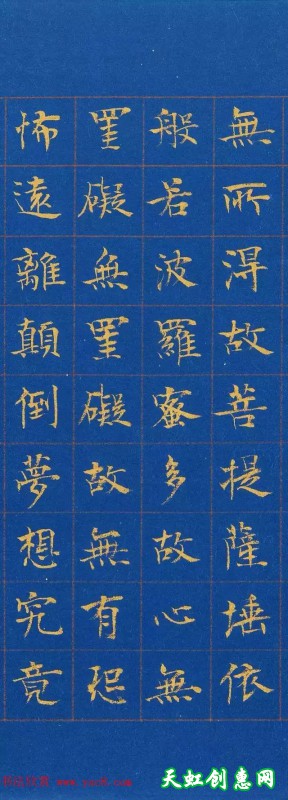 無所得故菩提薩埵依
般若波羅蜜多故心無
罣礙無罣礙故無有恐
怖遠離顛倒夢想究竟
天虹创惠网